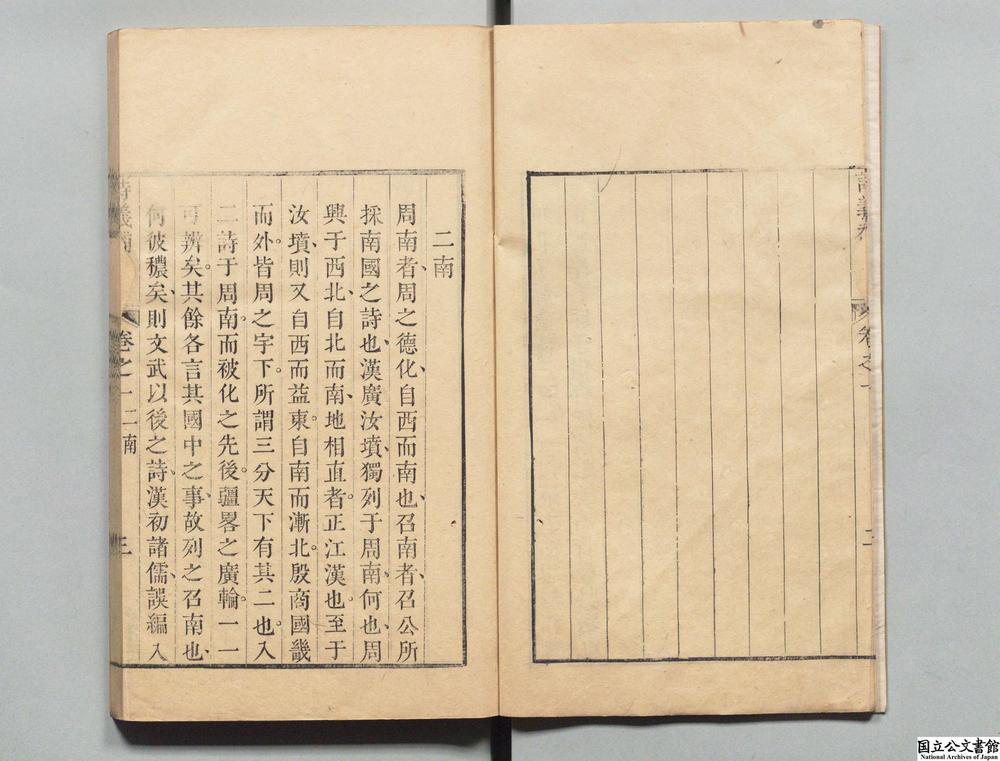 卷之一
二南
周南者、周之德化、自西而南也、召南者、召公所
採南國之詩也、漢廣汝墳、獨列于周南、何也、周
興于西北、自北而南、地相直者。正江漢也。至于
汝墳、則又自西而益東。自南而漸北。殷商國畿
而外。皆周之宇下。所謂三分天下有其二也。入
二詩于周南。而被化之先後。疆畧之廣輪。一一
可辨矣。其餘各言其國中之事、故列之召南也、
何彼穠矣、則文武以後之詩、漢初諸儒、誤編入
詩義補
卷之一二南
三
国立公文書館
National Archives of Japan